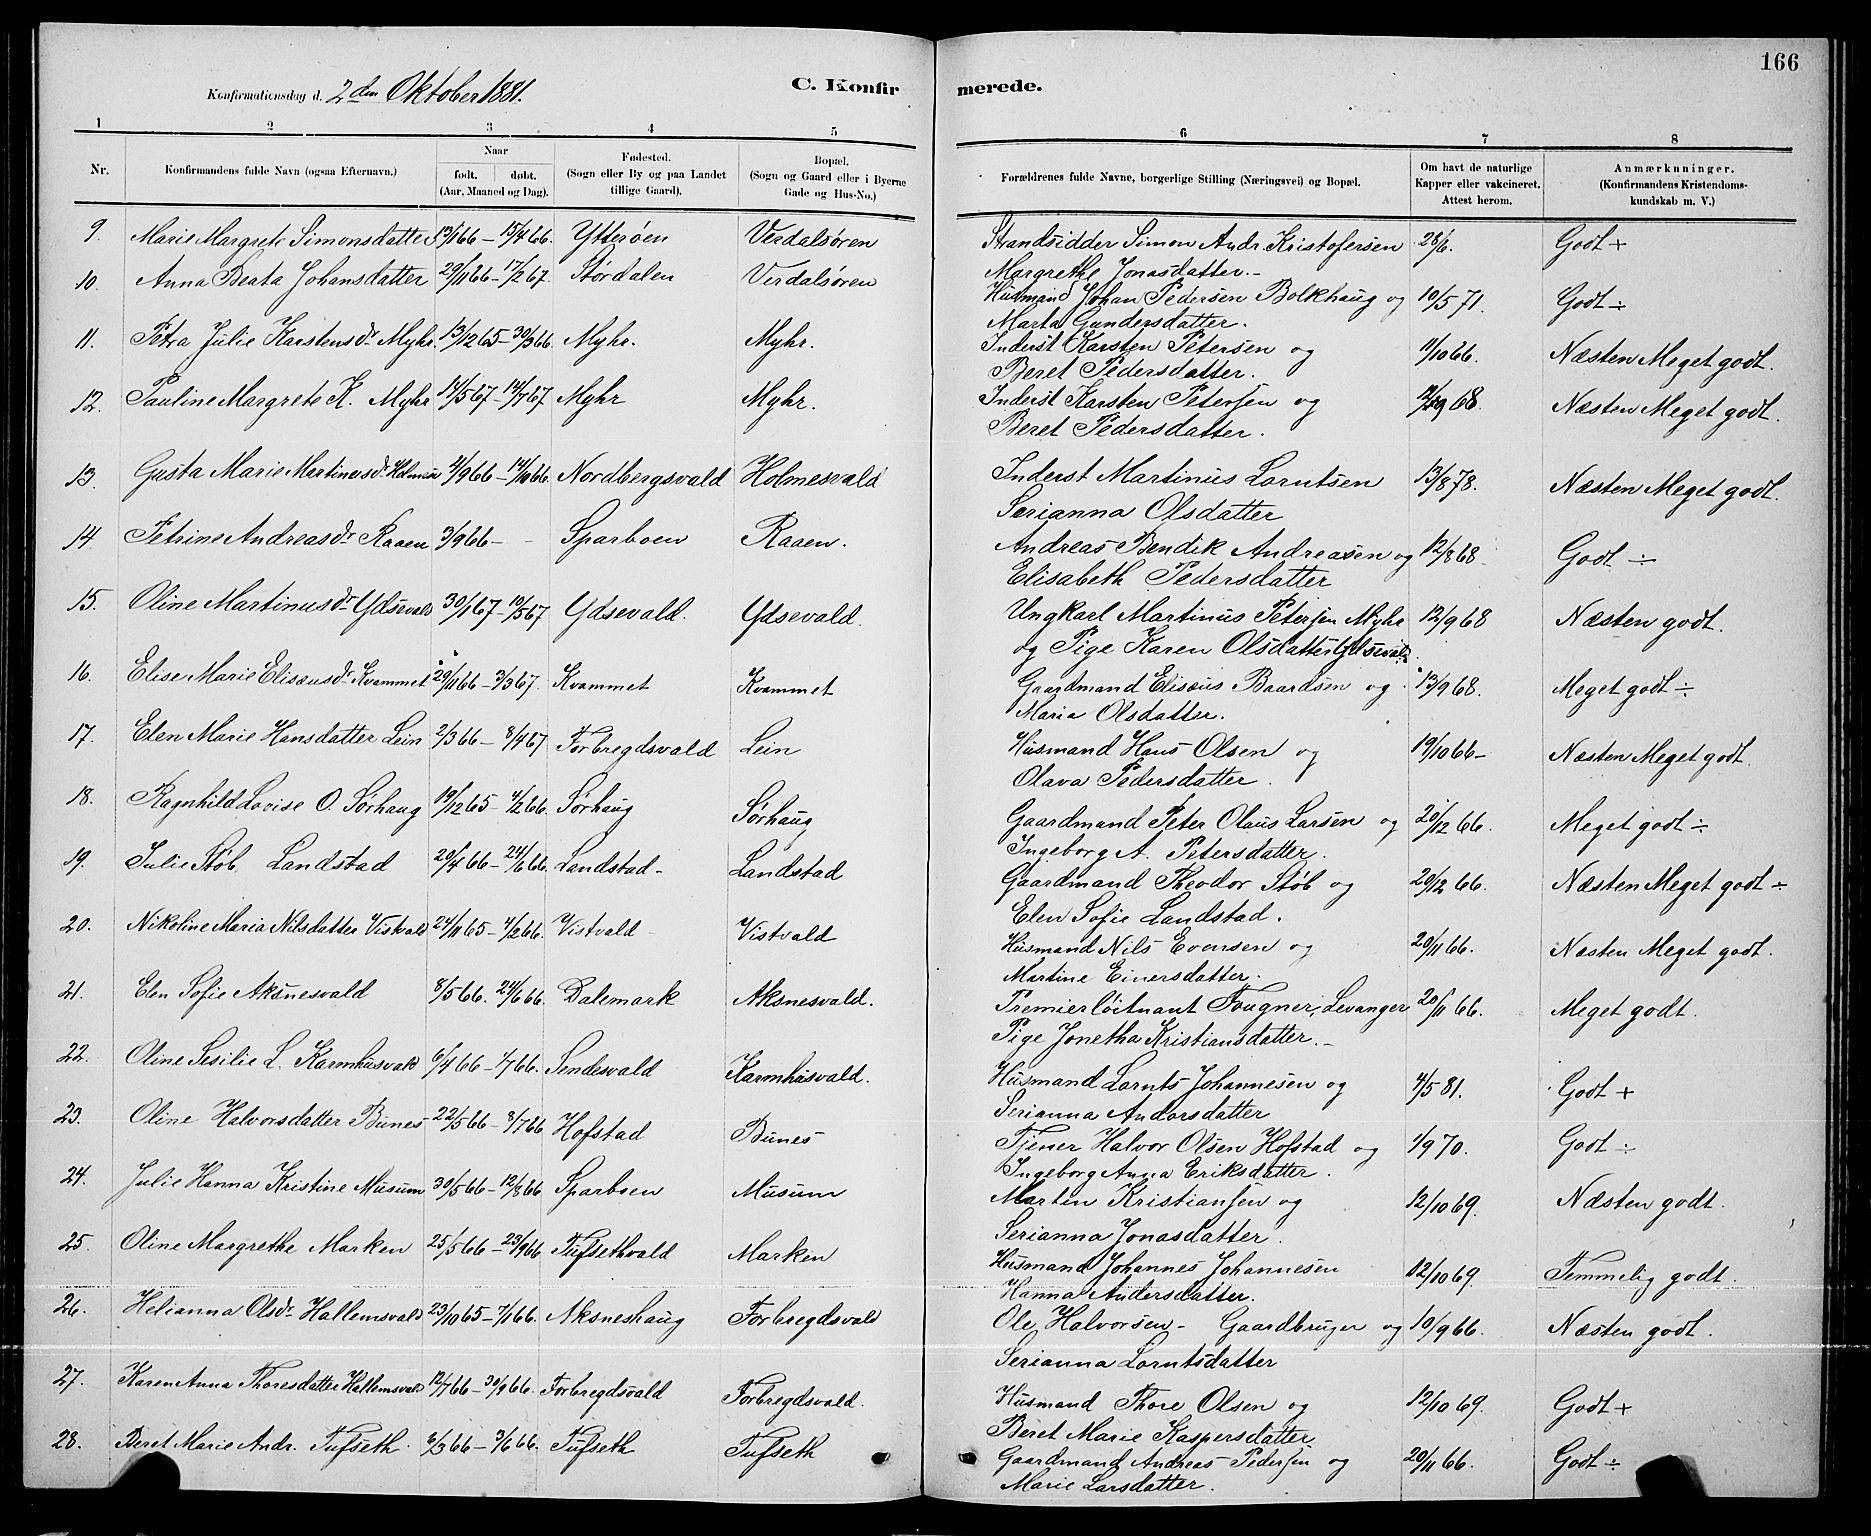 166
Konfirmationsdag d. 2den Oktober 1881.
C. Konfirmerede.
1 2 3 4 5 6 7 8
Nr.
Konfirmandens fulde Navn (ogsaa Efternavn.)
Naar
født. døbt.
(Aar, Maaned og Dag).
Fødested.
(Sogn eller By og paa Landet
tillige Gaard).
Bopæl.
(Sogn og Gaard eller i Byerne
Gade og Hus-No.)
Forældrenes fulde Navne, borgerlige Stilling (Næringsvei) og Bopæl.
Om havt de naturlige
Kapper eller vakcineret.
Attest herom.
Anmærkninger.
(Konfirmandens Kristendoms-
kundskab m. V.)
9. Marie Margrete Simonsdatter 13/1 66 – 15/4 66. Ytterøen Verdalsøren Strandsidder Simon Andr. Kristofersen 28/6. Godt +
Margrethe Jonasdatter.-
10. Anna Beata Johansdatter 29/11 66 – 17/2 67. Størdalen Verdalsøren Husmand Johan Pedersen Bolkhaug og 10/5 71. Godt ÷
Marta Gundersdatter.
11. Petra Julie Karstensdr Myhr. 13/12 65 – 30/3 66. Myhr. Myhr. Inderst Karsten Petersen og 11/10 66. Næsten Meget godt.
Beret Pedersdatter.
12. Pauline Margrete K. Myhr 14/5 67 – 14/7 67 Myhr Myhr. Inderst Karsten Petersen og 9 68. Næsten Meget godt.
Beret Pedersdatter.
13. Gusta Marie Martinusdr 21/9 66 – 14/10 66. Nordbergsvald Holmesvald Inderst Martinus Lorntsen 13/8 78. Næsten Meget godt.
Serianna Olsdatter
14. Petrine Andreasdr Raaen 3/9 66 – - Sparboen Raaen. Andreas Bendik Andreasen og 12/8 68 Godt ÷
Elisabeth Pedersdatter
15. Oline Martinusdr Ydsevald 30/1 67 – 19/5 67 Ydsevald. Ydsevald. Ungkarl Martinus Petersen Myhr 12/9 68 Næsten godt.
og Pige Karen Olsdatter Ydsevald.
16. Elise Marie Elisæusdr Kvammet 29/11 66 – 3/3 67. Kvammet Kvammet Gaardmand Elisæus Baardsen og 13/9 68. Meget godt ÷
Maria Olsdatter.
17. Elen Marie Hansdatter Lein 2/3 66 – 8/4 67 Forbregdsvald Lein Husmand Hans Olsen og 19/10 66 – Næsten Meget godt
Olava Pedersdatter.
18. Ragnhild Lovise O. Sørhaug 19/12 65 – 4/2 66. Sørhaug Sørhaug Gaardmand Peter Olaus Larsen og 20/12 66. Meget godt ÷
Ingeborg A. Petersdatter.
19. Julie Støb Landstad 20/4 66 – 24/6 66. Landstad - Landstad Gaardmand Theodor Støb og 20/12 66. Næsten Meget godt ÷
Elen Sofie Landstad.
20. Nikoline Maria Nilsdatter Vistvald 24/11 65 – 4/2 66. Vistvald Vistvald Husmand Nils Evensen og 20/11 66. Næsten Meget godt.
Martine Einersdatter.
21. Elen Sofie Aksnesvald 8/5 66. 24/6 66. Dalemark Aksnesvald. Premierløitnant Fougner, Levanger 20/11 66. Meget godt.
Pige Jonetha Kristiansdatter.-
22. Oline Sesilie L. Karmhusvald 6/4 66 – 1/7 66. Sendesvald Karmhusvald. Husmand Lornts Johannesen og 4/5 81. Godt +
Serianna Andorsdatter
23. Oline Halvorsdatter Bunes 22/5 66 – 8/7 66 Hofstad Bunes Tjener Halvor Olsen Hofstad og 1/9 70. Godt ÷
Ingeborg Anna Eriksdatter.
24. Julie Hanna Kristine Musum 30/5 66 – 12/8 66 Sparboen Musum Martin Kristiansen og 12/10 69. Næsten godt.
Serianna Jonasdatter.
25. Oline Margrethe Marken 25/5 66 – 23/9 66 Tufsethvald Marken Husmand Johannes Johannesen 12/10 69 Temmelig godt.
Hanna Andersdatter.
26. Helianna Olsdr Hallemsvald 23/10 65 – 7/1 66. Aksneshaug Forbregdsvald Ole Halvorsen - Gaardbruger og 10/9 66. Næsten godt.
Serianna Lorntsdatter
27. Karen Anna Thoresdatter Hallemsvald 12/7 66 – 30/9 66. Forbregdsvald Forbregdsvald. Husmand Thore Olsen og 12/10 69. Godt +
Beret Marie Kaspersdatter
28. Beret Marie Andr. Tufseth. 6/3 66 – 3/6 66. Tufseth Tufseth Gaardmand Andreas Pedersen og 20/11 66. Godt ÷
Marie Larsdatter.